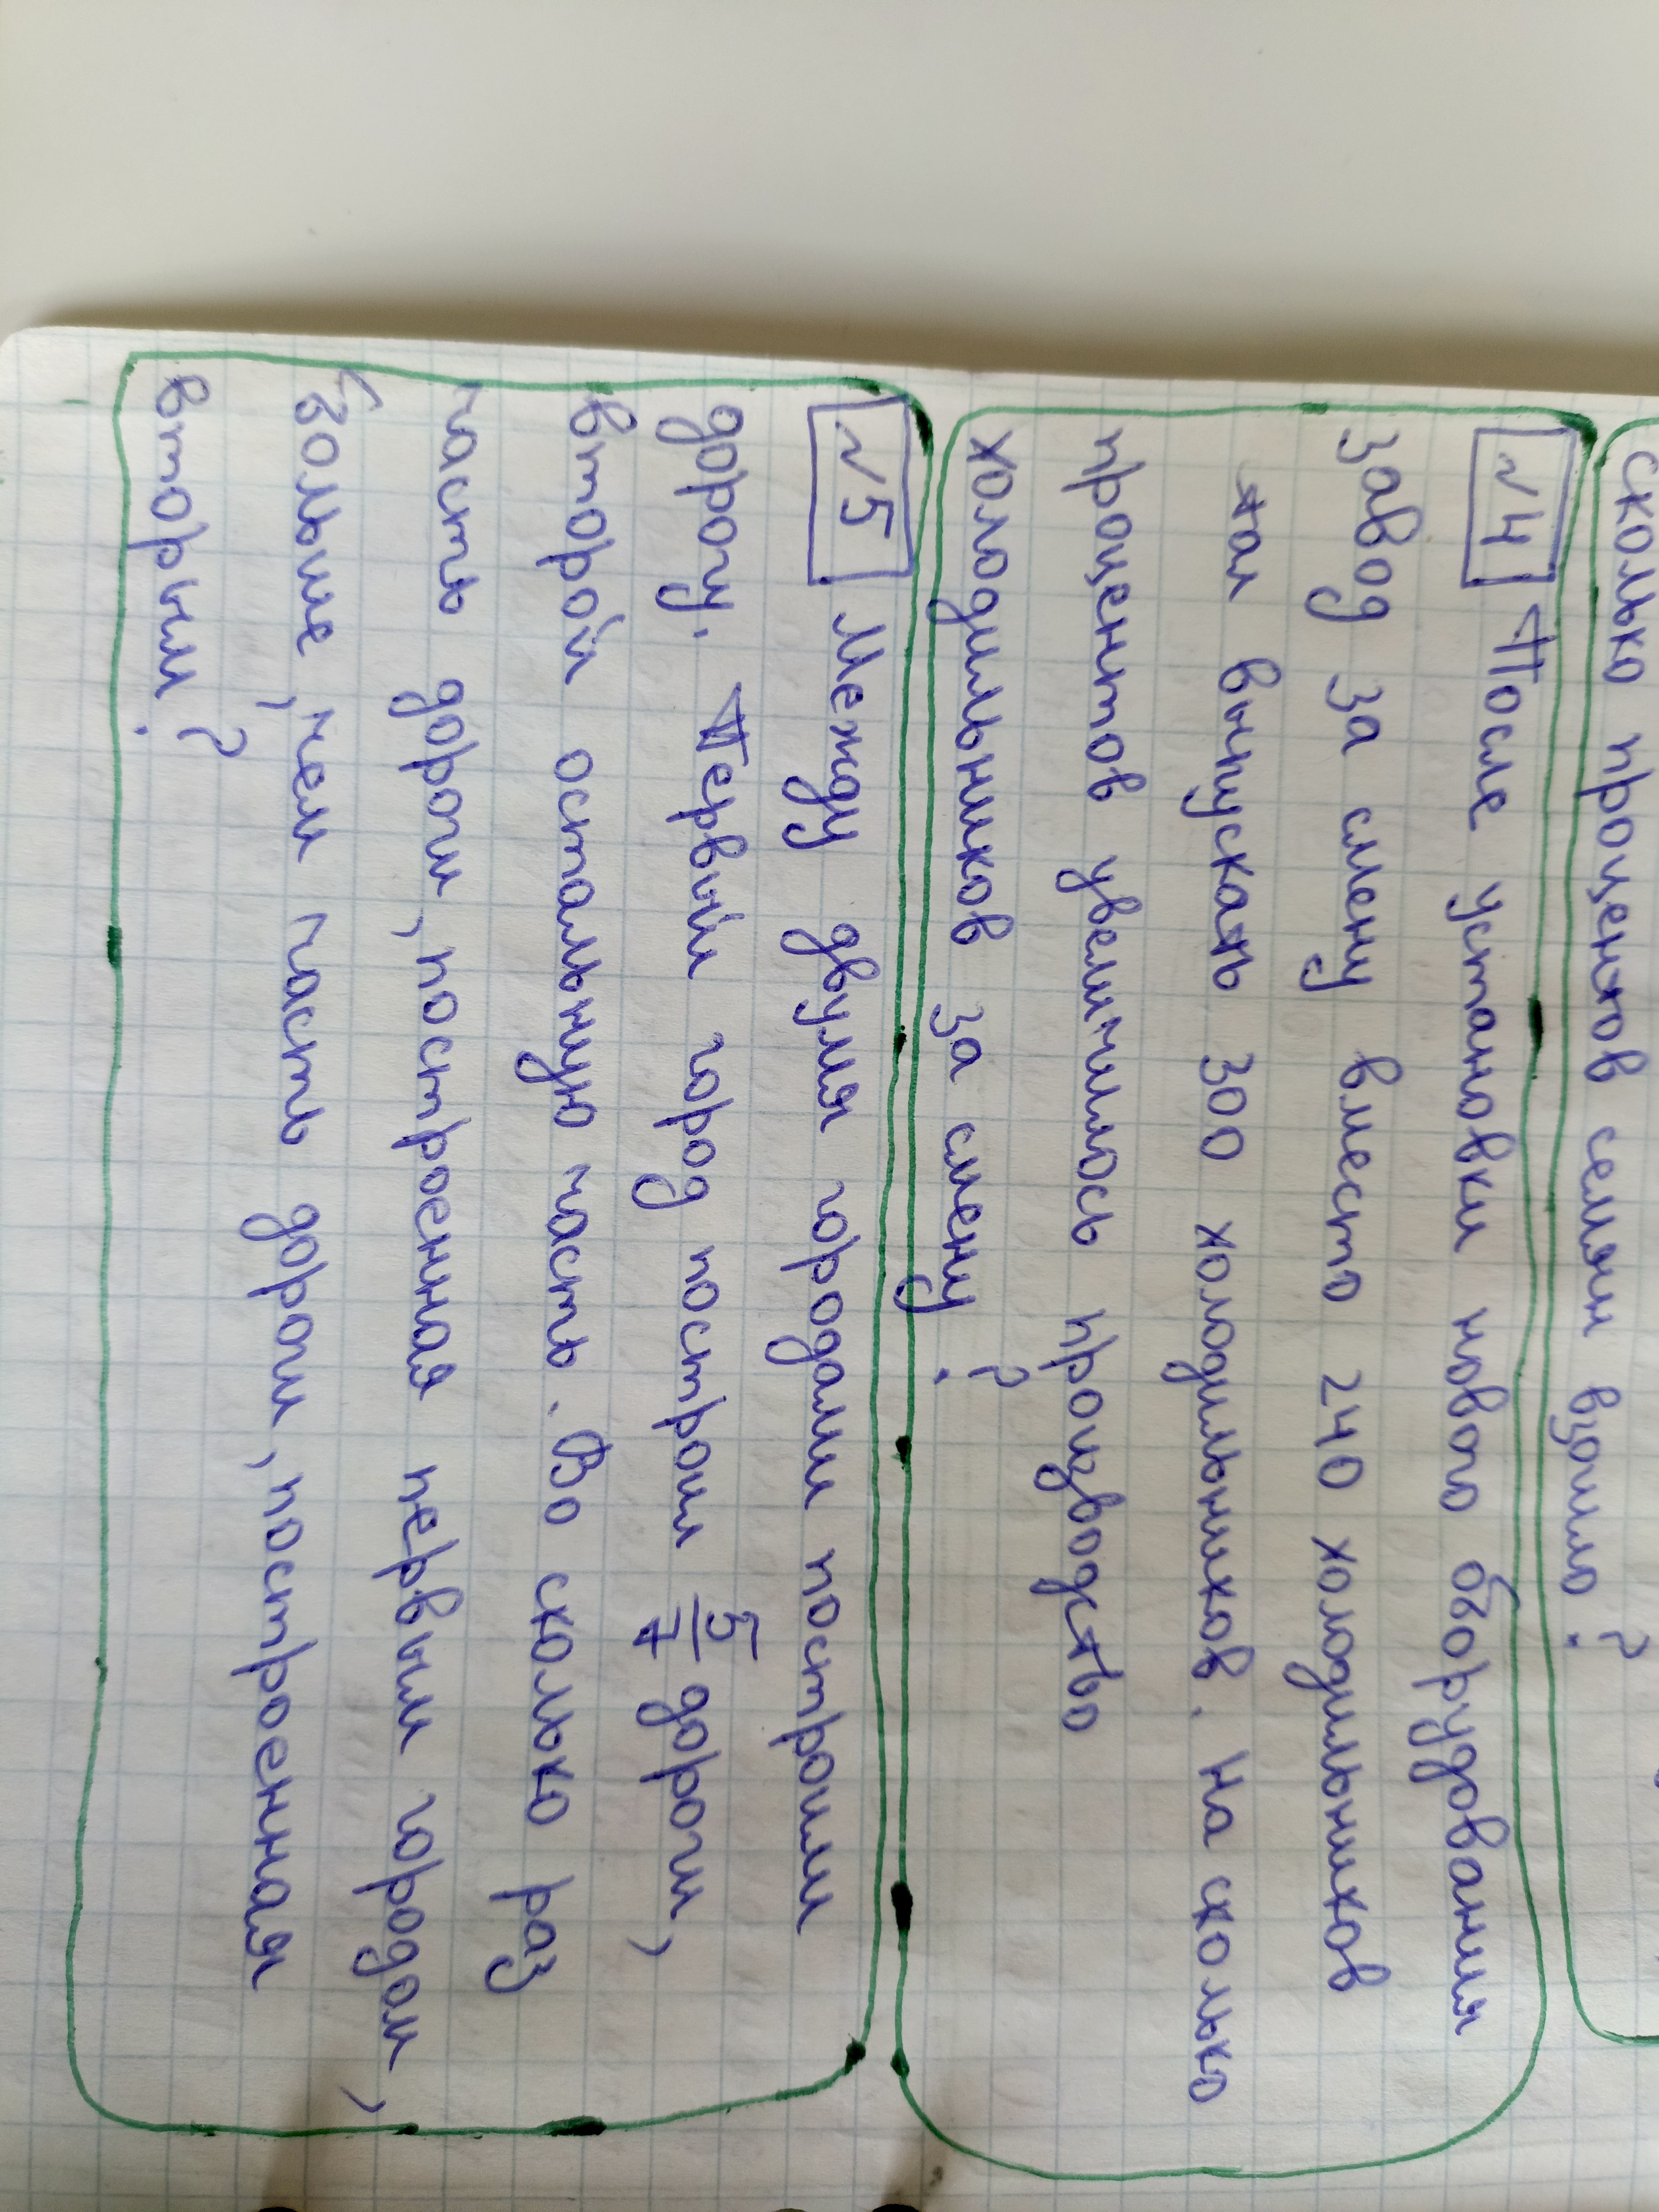 сколько процентов семян взошло?
№4 После установки нового оборудования
завод за смену вместо 240 холодильников
стал выпускать 300 холодильников. На сколько
процентов увеличилось производство
холодильников за смену?
№5 Между двумя городами построили
дорогу. Первый город построил 5/7 дороги,
второй остальную часть. Во сколько раз
часть дороги, построенная первым городом,
больше, чем часть дороги, построенная
вторым?